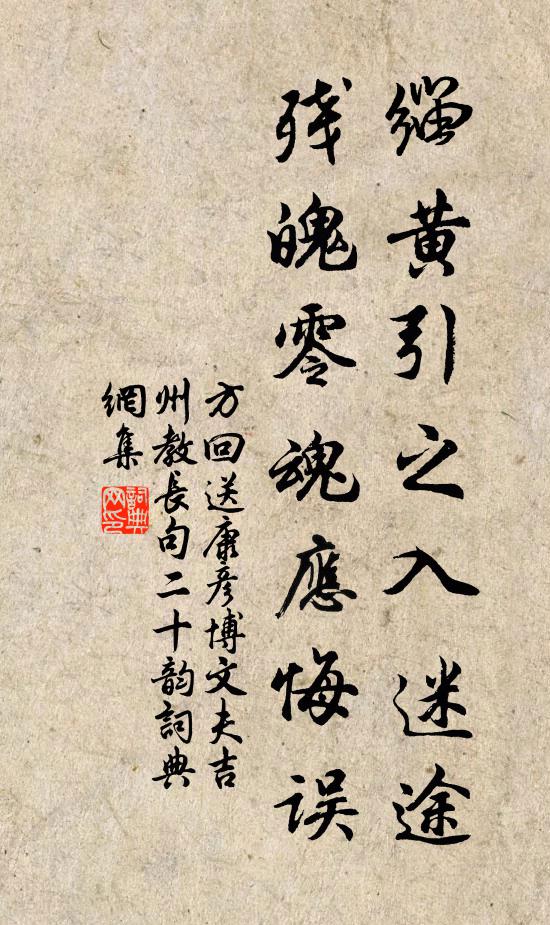 缁黄引之入迷途
残魄零魂應悔误
方回送康彦博文夫吉
州教長句二十韵詞典
網集
詞典网印